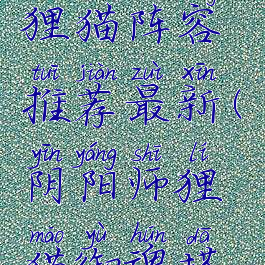 狸猫阵容
tuī jiàn zuì xīn
推荐最新(
yīn yáng shī lí
阴阳师狸
māo yù hún dā
猫御魂搭